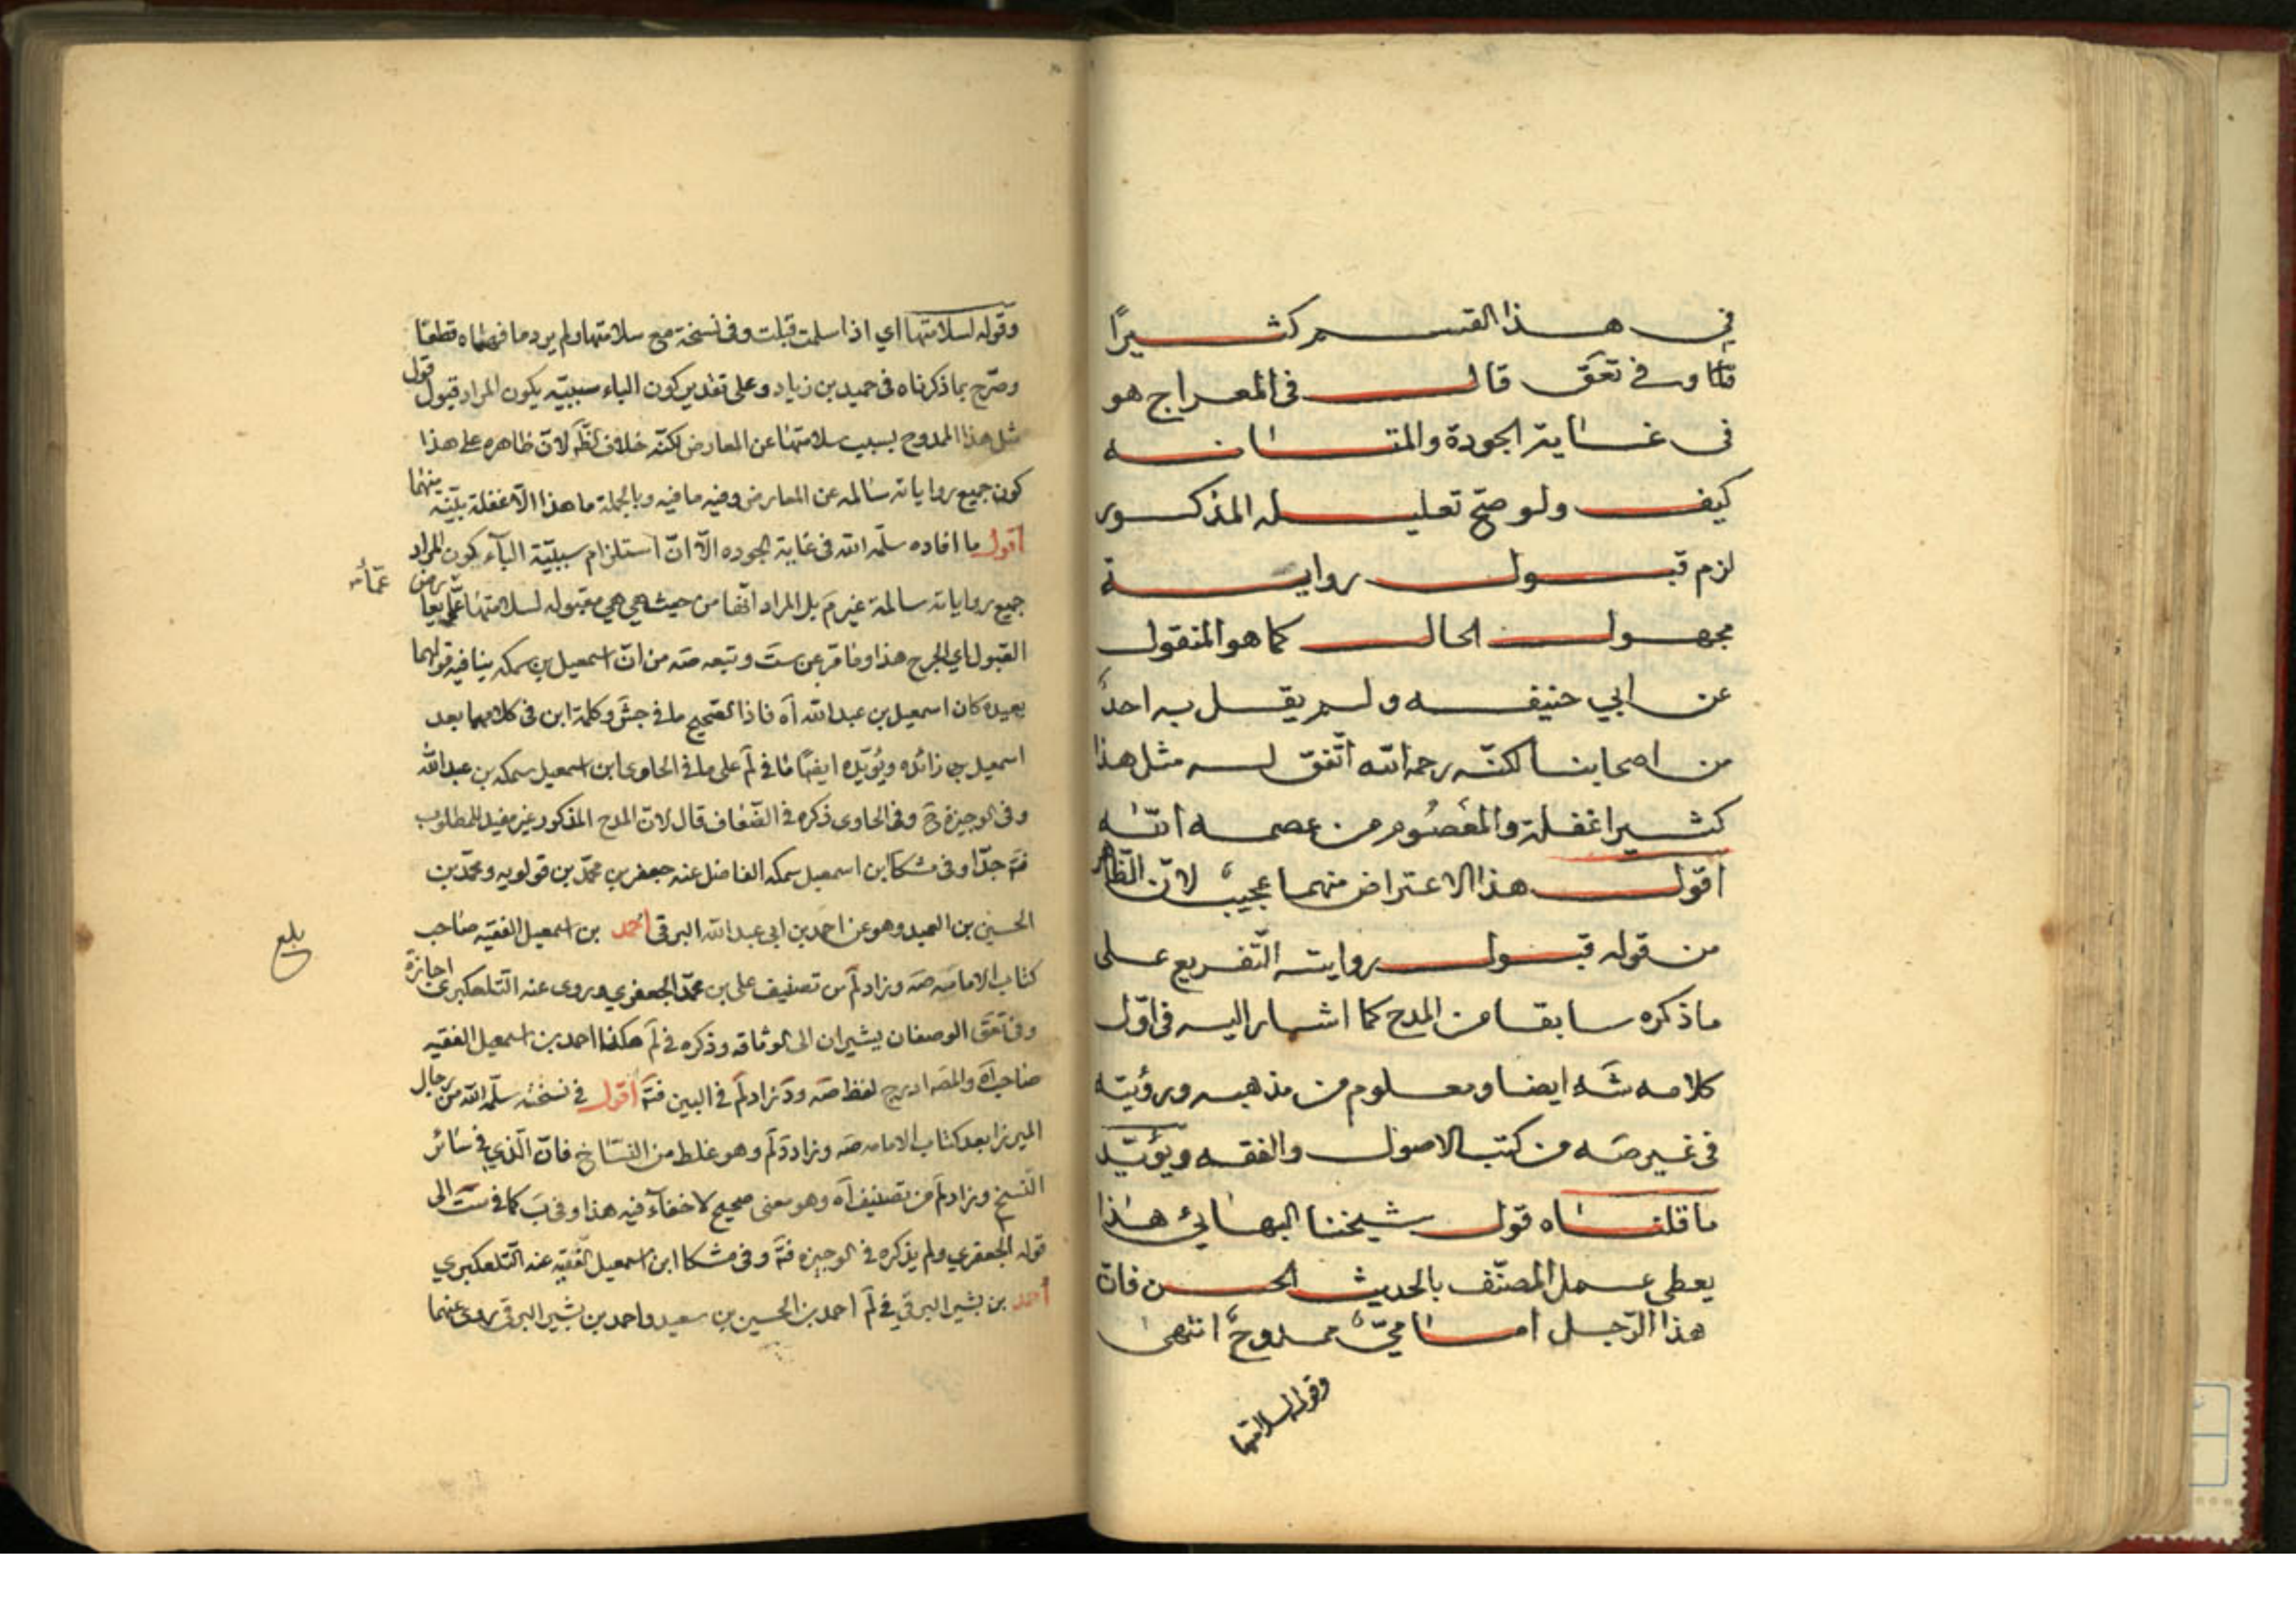 في هذا القسم كثيرًا
قلنا وفي تعق قال في المعراج هو
في غاية الجودة والمتانه
كيف ولو صح تعليله المذكور
لزم قبول رواية
مجهول الحال كما هو المنقول
عن ابي حنيفه ولم يقل به احدٌ
من اصحابنا لكنّه رحمه الله اتّفق له مثل هذا
كثيرا غفلة والمعصُوم من عصمه الله
اقول هذا الاعتراض منهما عجيبٌ لانّ الظّاهر
من قوله قبول روايته التّفريع على
ما ذكره سابقا من المدح كما اشار اليه في اوّل
كلامه شَه ايضا ومعلوم من مذهبه ورؤيته
في غير صَه من كتب الاصول والفقه ويؤيّد
ما قلناه قول شيخنا البهائي هذا
يعطى عمل المصنّف بالحديث الحسن فانّ
هذا الرّجل امامّيٌ ممدوحٌ انتهى
وقوله لسلامتها
وقوله لسلامتها اي اذا سلمت قبلت وفي نسخة مع سلامتها ولم يرد ما فهماه قطعًا
وصرّح بما ذكرناه في حميد بن زياد وعلى تقدير كون الباء سببيّه يكون المراد قبول قول
مثل هذا الممدوح بسبب سلامتها عن المعارض لكنّه خلاف الظّ لانّ ظاهره على هذا
كون جميع رواياته سالمه عن المعارض وفيه ما فيه وبالجملة ما هذا الّا غفلة بيّنة منهما
اقول ما افاده سلّمه الله في غاية الجوده الّا انّ استلزام سببيّة الباء كون المراد
جميع رواياته سالمة غير مَ بل المراد انّها من حيث هي هي مقبوله لسلامتها عمّا يعارض
عمّا
القبول اي الجرح هذا وما مَرّ عن ستَ وتبعه صَه من انّ اسمعيل بن سمكه ينافيه قولهما
بعيده كان اسمعيل بن عبد الله آه فاذا الصّحيح ما في جشَ وكلمة ابن في كلامهما بعد
اسمعيل زائده ويؤيّده ايضًا ما في لَم على ما في الحاوى ابن اسمعيل سمكه بن عبد الله
وفي الوجيزة حَ وفي الحاوى ذكره في الضّعاف قال لانّ المدح المذكور غير مفيد للمطلوب
فتَه جدّا وفي مشكا ابن اسمعيل سمكه الفاضل عنه جعفر بن محمّد بن قولويه ومحمّد بن
الحسين بن العميد وهو عن احمد بن ابي عبد الله البرقي احمد بن اسمعيل الفقيه صاحب
بلغ
كتاب الامامه صَه وزاد لَم من تصنيف علي بن محمّد الجعفري وروى عنه التلعكبرى اجازة
وفي تعَق الوصفان يشيران الى الوثاقه وذكره في لَم هكذا احمد بن اسمعيل الفقيه
صاحب آه والمصَ ادرج لفظ صَه و زاد لَم في البين فتَه اقول في نسخته سلّمه الله من رجال
الميرزا بعد كتاب الامامه صَه وزاد دَ لَم وهو غلط من النسّاخ فانّ الّذي في سائر
النّسخ وزاد لَم من تصنيف آه وهو معنى صحيح لا خفاء فيه هذا وفي بَ كما في ستَ الى
قوله الجعفري ولم يذكره في الوجيزه فتَه وفي مشكا ابن اسمعيل الفقيه عنه التلعكبري
احمد بن بشير البرقي في لَم احمد بن الحسين بن سعيد واحمد بن بشير البرقي روى عنهما